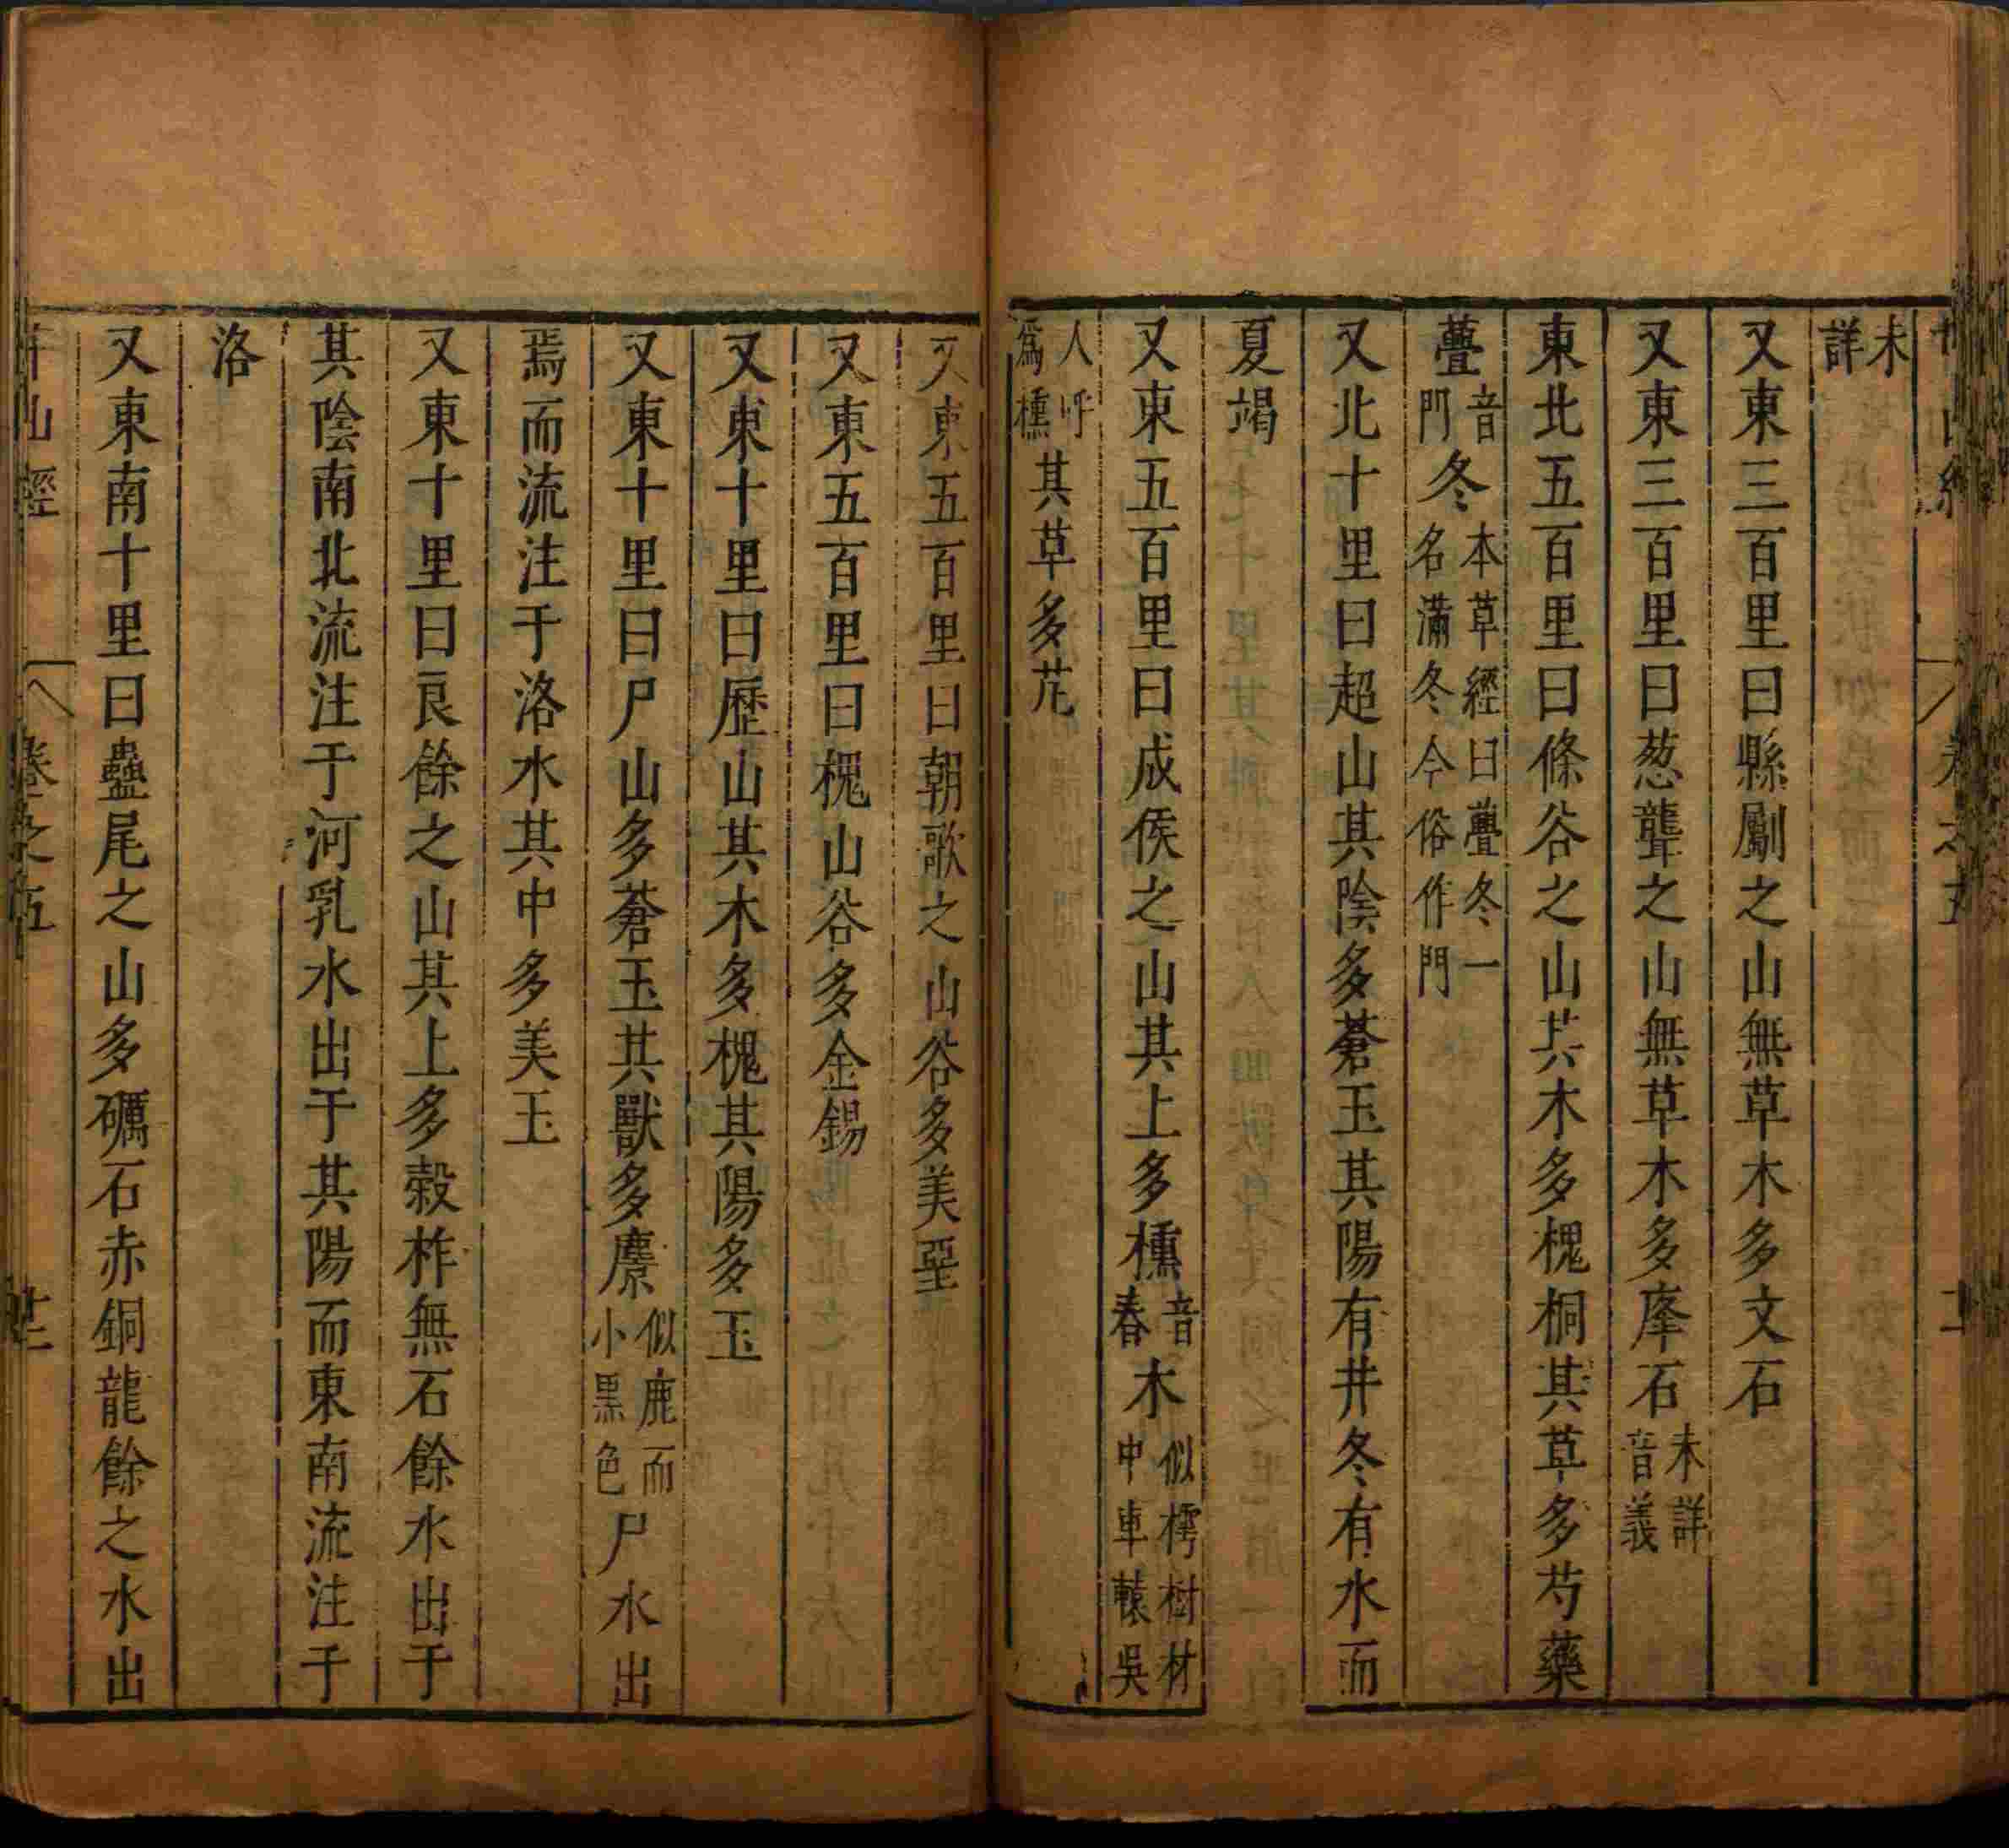 未詳
又東三百里曰縣斸之山無草木多文石
又東三百里曰葱聾之山無草木多㢸石未詳音義
東北五百里曰條谷之山其木多槐桐其草多芍藥
虋音門冬本草經曰虋冬一名滿冬今俗作門
又北十里曰超山其陰多蒼玉其陽有井冬有水而
夏竭
又東五百里曰成侯之山其上多櫄音春木似樗樹材中車轅吳
人呼爲櫄其草多芃
又東五百里曰朝歌之山谷多美堊
又東五百里曰槐山谷多金錫
又東十里曰歷山其木多槐其陽多玉
又東十里曰尸山多蒼玉其獸多麖似鹿而小黑色尸水出
焉而流注于洛水其中多美玉
又東十里曰良餘之山其上多穀柞無石餘水出于
其陰南北流注于河乳水出于其陽而東南流注于
洛
又東南十里曰蠱尾之山多礪石赤銅龍餘之水出
山經
卷之五